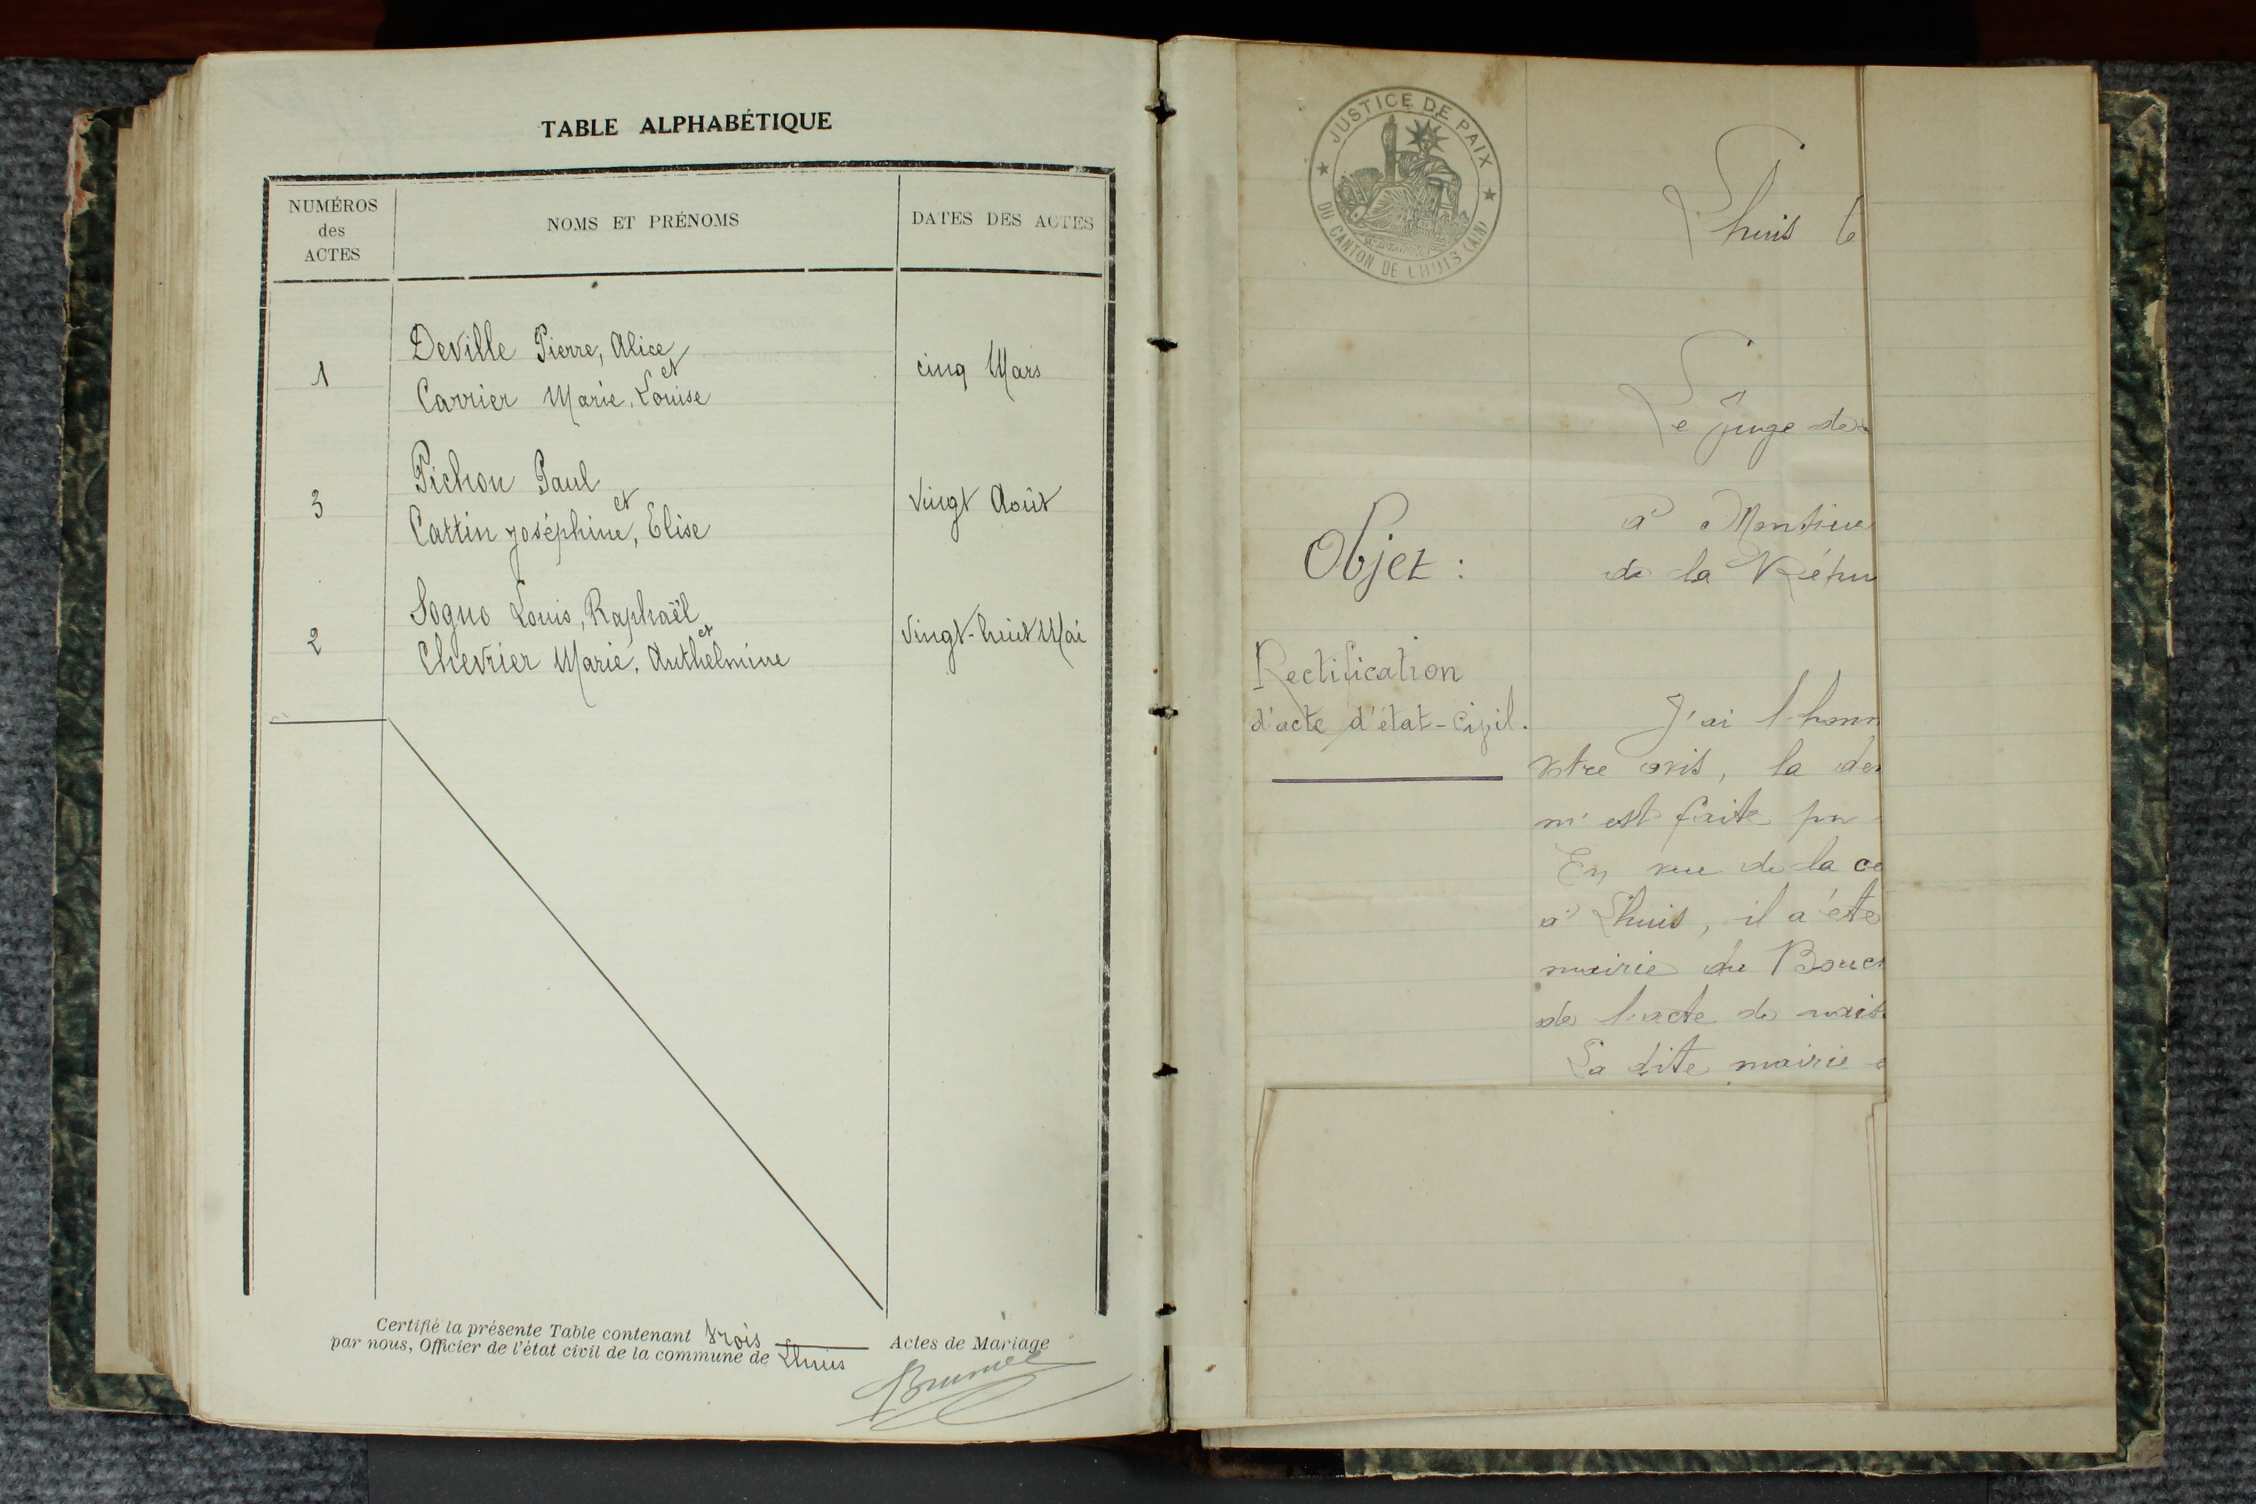 TABLE ALPHABÉTIQUE
NUMÉROS
des
ACTES
NOMS ET PRÉNOMS
DATES DES ACTES
1
Deville Pierre, Alice
et
Carrier Marie, Louise
cinq Mars
3
Pichon Paul
et
Cattin Joséphine, Elise
Vingt Août
2
Sogno Louis, Raphaël
et
Chevrier Marie, Anthelmine
Vingt-huit Mai
Certifié la présente Table contenant trois Actes de Mariage
par nous, Officier de l'état civil de la commune de Lhuis
JUSTICE DE PAIX
DU CANTON DE LHUIS (AIN)
Objet :
Rectification
d'acte d'état-civil.
Lhuis le
Le Juge de
à Monsieu
de la Répu
J'ai l'honn
votre avis, la de
m'est faite pa
En vue de la cé
à Lhuis, il a été
mairie du Bouc
de l'acte de nais
La dite mairie